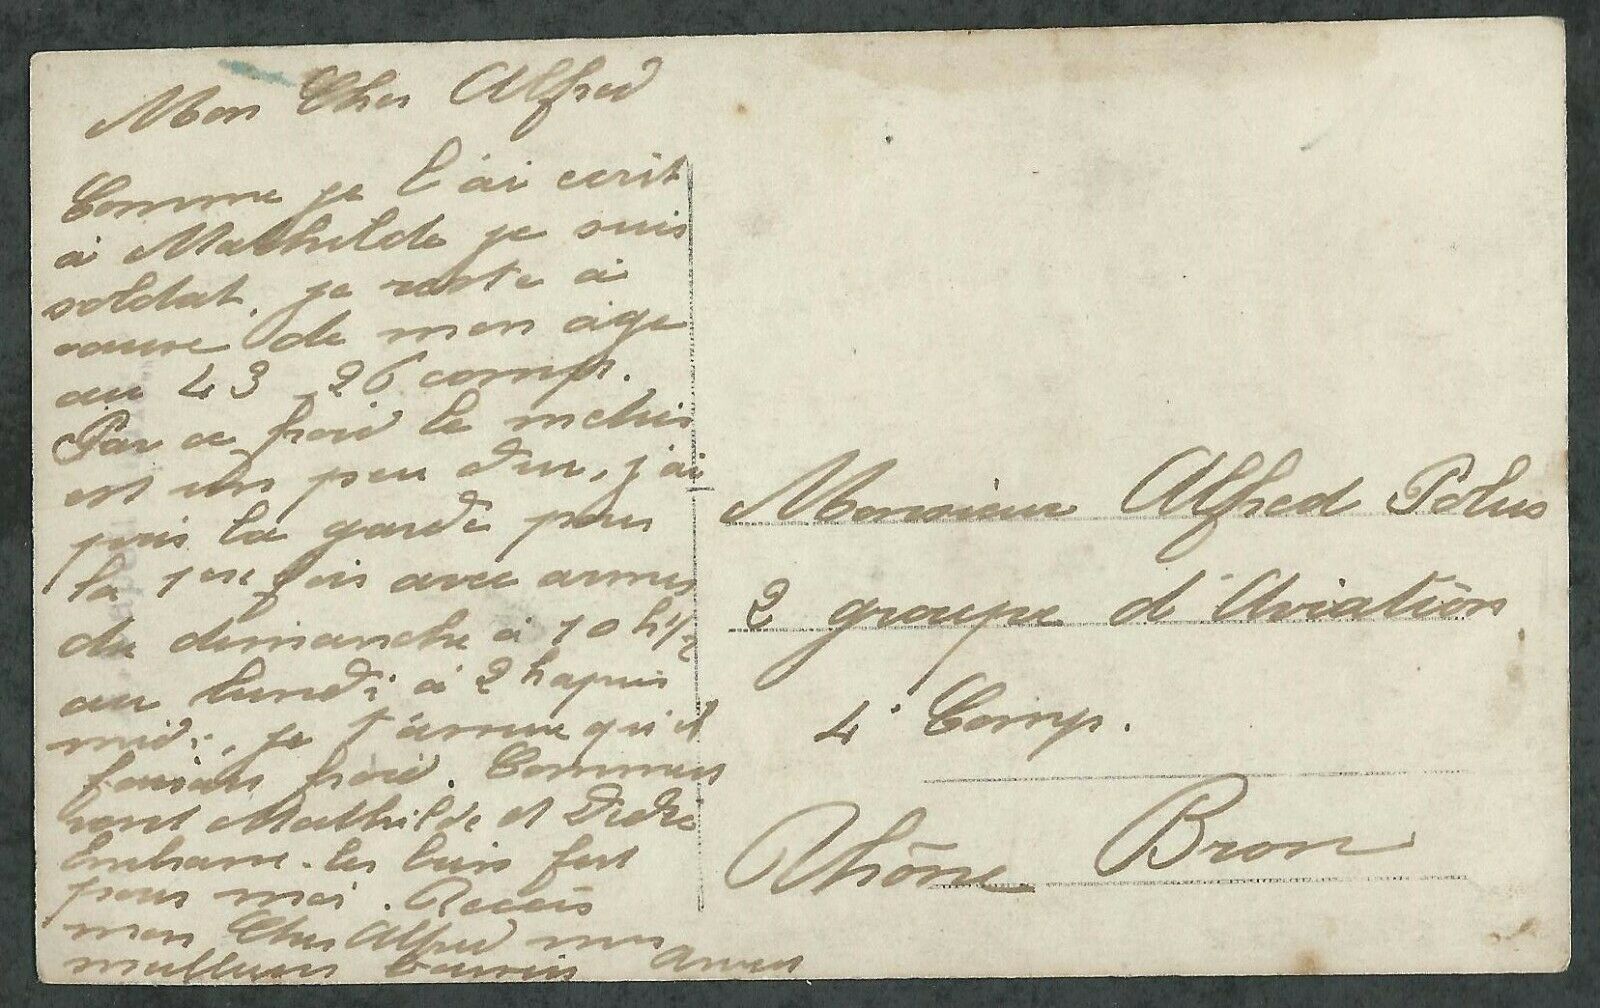 Mon Cher Alfred
Comme je l'ai ecrit
à Mathilde je suis
soldat, je reste à
cause de mon âge
au 43 26 comp.
Par ce froid le métier
est un peu dur, j'ai
pris la garde pour
la 1ere fois avec armes
du dimanche à 10 h 1/2
au lundi à 2 h apres
midi, je t'assure qu'il
faisais froid. Comment
vont Mathilde et
Embrasse-les bien fort
pour moi. Recois
mon Cher Alfred mes
meilleurs baisers
Monsieur Alfred Polus
2 groupe d'Aviation
4e Comp.
Rhône Bron